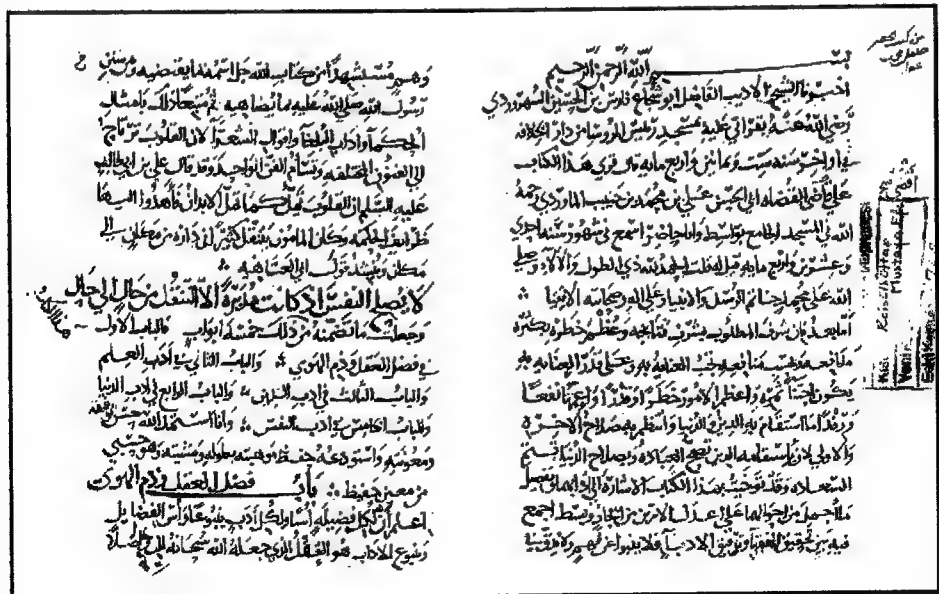 بسم الله الرحمن الرحيم
اخبرنا الشيخ الاديب الفاضل ابو شجاع فارس بن الحسين السهروردي
رضي الله عنه بقراتي عليه بمسجد رئيس الروسا من دار الخلافه
في اواخر سنه ست وثمانين واربع مايه قال قري هذا الكتاب
على اقضى القضاه ابي الحسن علي بن محمد بن حبيب الماوردي رحمه
الله في المسجد الجامع بواسط وانا حاضر اسمع في شهور سنه احدى
وعشرين واربع مايه قيل له قلت الحمد لله ذي الطول والآلاء وصلى
الله على محمد خاتم الرسل والانبياء وعلى اله وصحابته الاتقيا
أما بعد فان شرف المطلوب بشرف نتايجه وعظم خطره بكثره
منافعه وبحسب منافعه تجب العنايه به وعلى قدر العنايه به
يكون اجتنا ثمرته واعظم الامور خطرًا وقدرًا واعمها نفعًا
ورفدًا ما استقام به الدين والدنيا وانتظم به صلاح الاخره
والاولى لان باستقامه الدين تصح العباده وبصلاح الدنيا تتم
السعاده وقد توخيت بهذا الكتاب الاشاره الى ادابهما وتفصيل
ما اجمل من احوالهما على اعدل الامرين من ايجاز وبسط اجمع
فيه بين تحقيق الفقها وترقيق الادبا فلا ينبوا عن فهم ولا يدق في
وهم مستشهدًا من كتاب الله جل اسمه بما يقتضيه ومن سنن
رسول الله صلى الله عليه بما يضاهيه ثم متبعًا ذلك بامثال
الحكما واداب البلغا واقوال الشعرا لان القلوب ترتاح
الى الفنون المختلفه وتسأم الفن الواحد وقد قال علي بن ابي طالب
عليه السلم ان القلوب تمل كما تمل الابدان فاهدوا اليها
ظرايف الحكمه وكان المامون يتنقل كثيرًا في داره من مكان الى
مكان وينشد قول ابي العتاهيه
لا يصلح النفس اذ كانت مدبرة الا التنقل من حال الى حال
وجعلت ما تضمنه من ذلك خمسه ابواب فالباب الاول
في فضل العقل وذم الهوي والباب الثاني في ادب العلم
والباب الثالث في ادب الدين والباب الرابع في ادب الدنيا
والباب الخامس في ادب النفس وانا استمد الله حسن توفيقه
ومعونته واستودعه حفظ موهبته بطوله ومشيته وهو حسبي
من معين وحفيظ باب فضل العقل وذم الهوى
اعلم ان لكل فضيله اسًا ولكل ادب ينبوعًا واس الفضايل
وينبوع الاداب هو العقل الذي جعله الله سبحانه للدين اصلا
Reisülküttap
Mustafa Ef